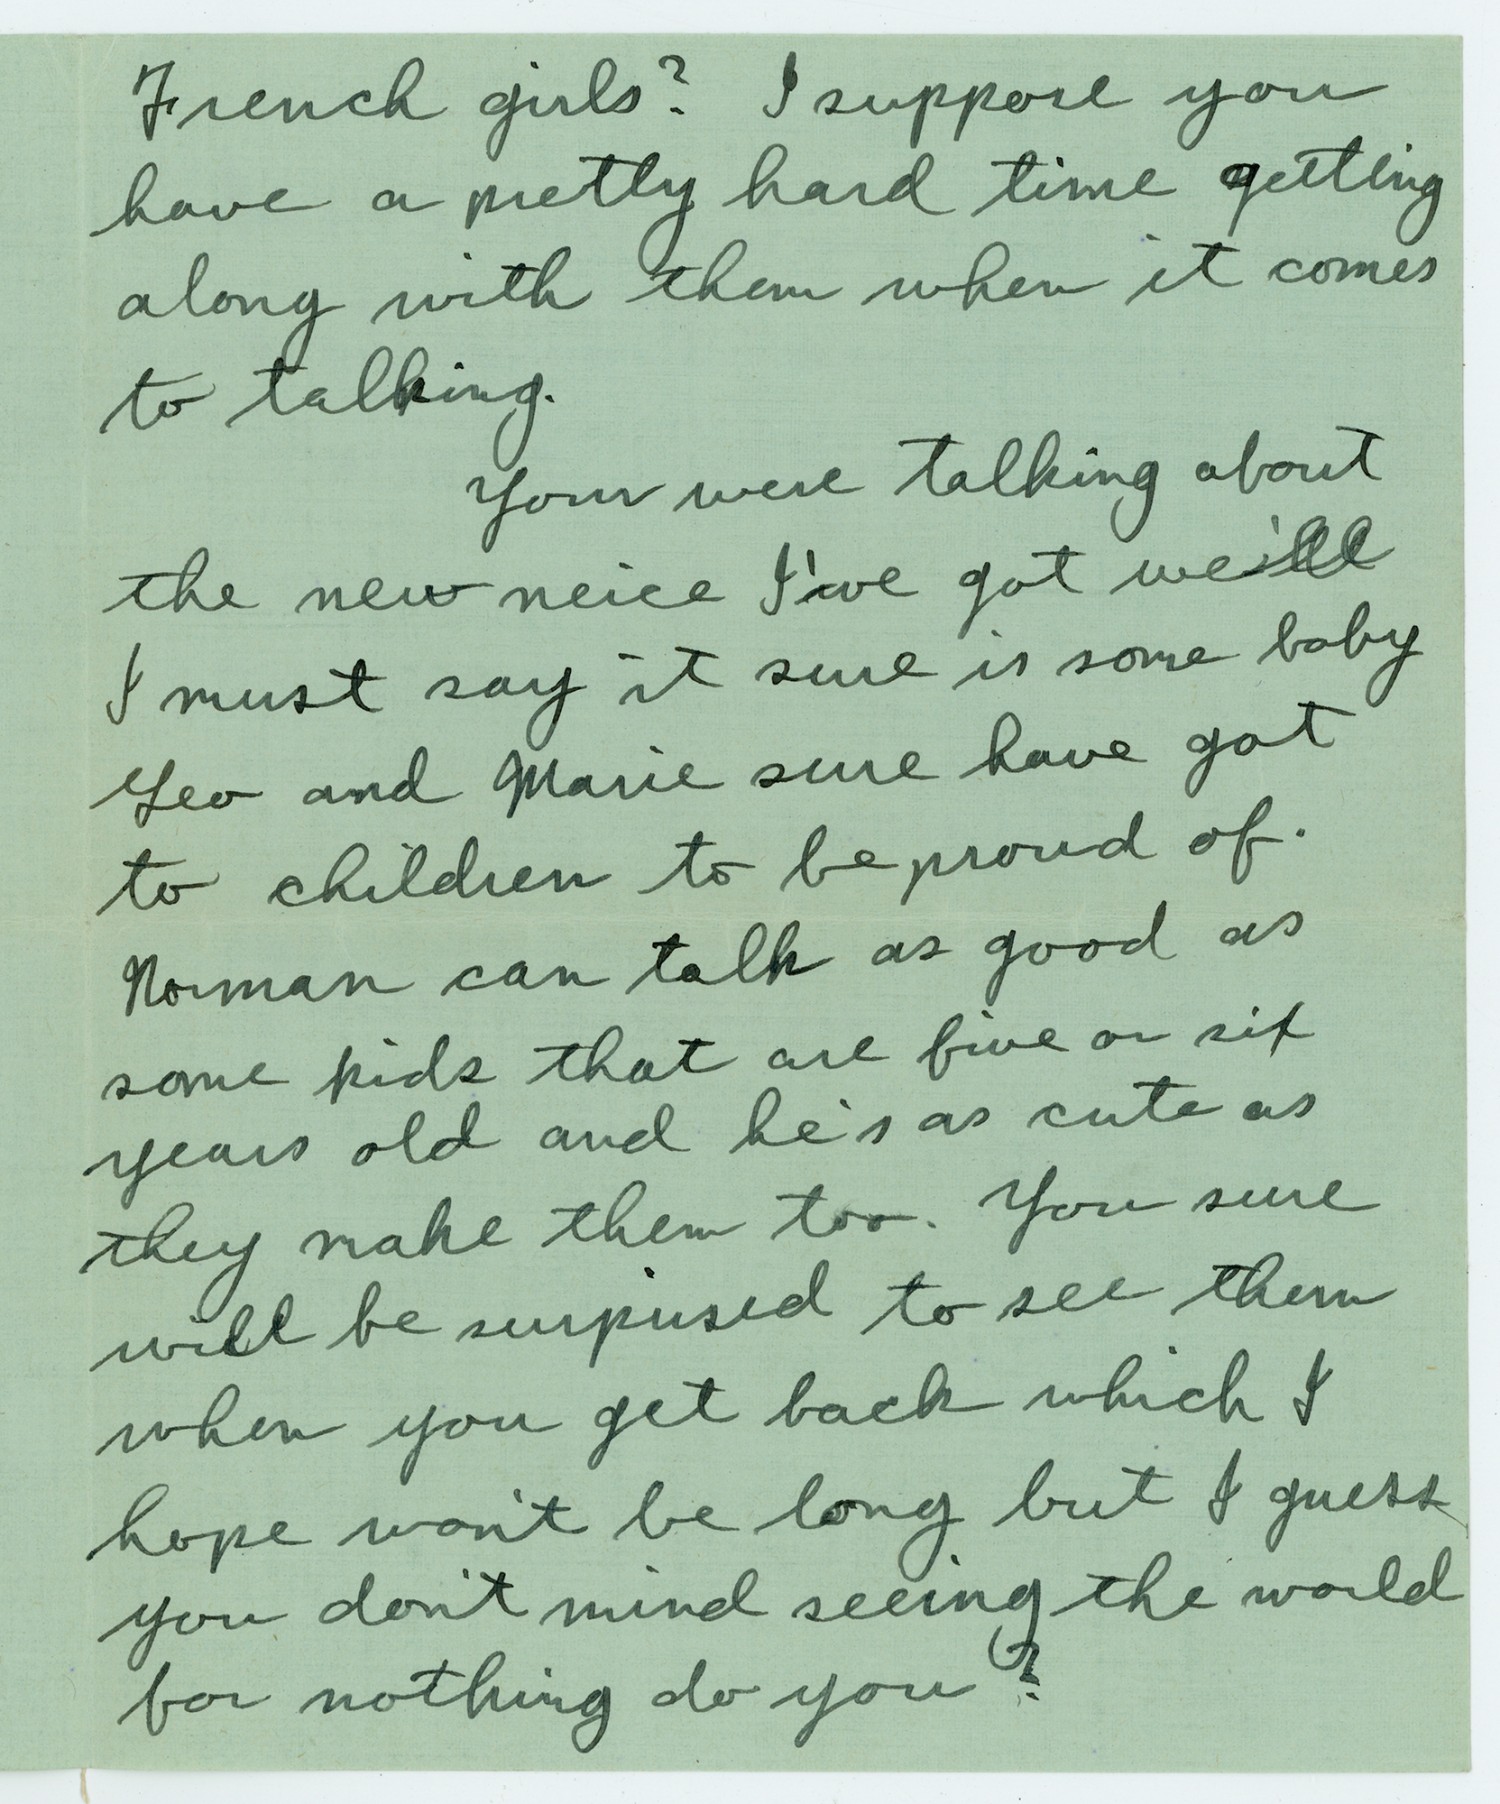 French girls? I suppose you
have a pretty hard time getting
along with them when it comes
to talking.
Your were talking about
the new neice I've got we'll
I must say it sure is some baby
Leo and Marie sure have got
to children to be proud of.
Norman can talk as good as
some kids that are five or six
years old and he's as cute as
they make them too. You sure
will be surpused to see them
when you get back which I
hope won't be long but I guess
you don't mind seeing the world
for nothing do you?